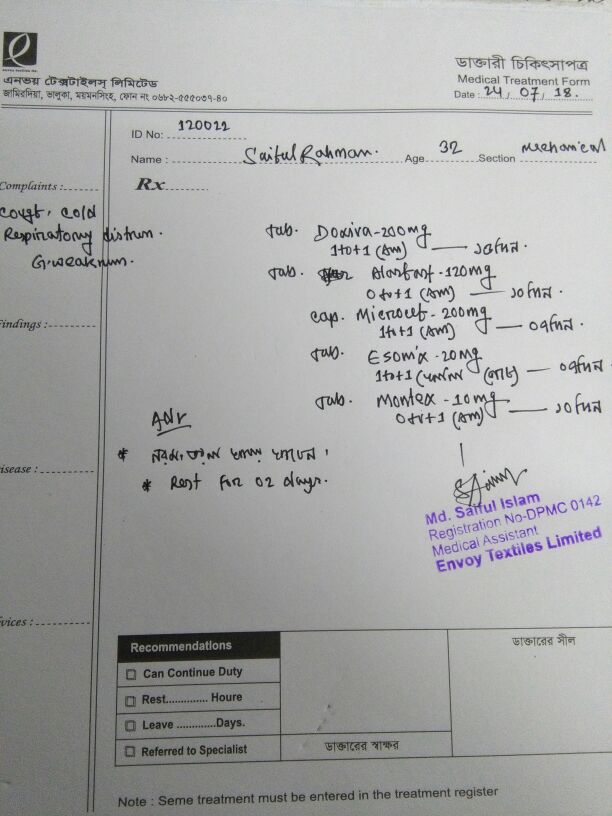 এনভয় টেক্সটাইলস্ লিমিটেড
জামিরদিয়া, ভালুকা, ময়মনসিংহ, ফোন নং ০৬৮২-৫৫৫০৩৭-৪০
ডাক্তারী চিকিৎসাপত্র
Medical Treatment Form
Date : 24 / 07 / 18.
ID No: 120022
Name : Saiful Rahman. Age 32 Section Mechanical
Complaints :
Rx
cold
Respiratory
G. weaknen.
Tab. Doxiva-200mg
1+0+1 (Am) — ১০দিন.
Tab. -120mg
0+0+1 (Am) — ১০দিন.
Cap. Microcef-200mg
1+0+1 (Am) — ০৭দিন.
Tab. Esomix-20mg
1+0+1 — ০৭দিন.
Tab. Montex-10mg
0+0+1 (Am) — ১০দিন
Findings :
Adv
* Rest for 02 days.
isease :
Md. Saiful Islam
Registration No-DPMC 0142
Medical Assistant
Envoy Textiles Limited
vices :
Recommendations
Can Continue Duty
Rest.............. Houre
Leave .............Days.
Referred to Specialist
ডাক্তারের স্বাক্ষর
ডাক্তারের সীল
Note : Seme treatment must be entered in the treatment register